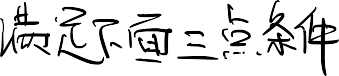 满足下面三点条件